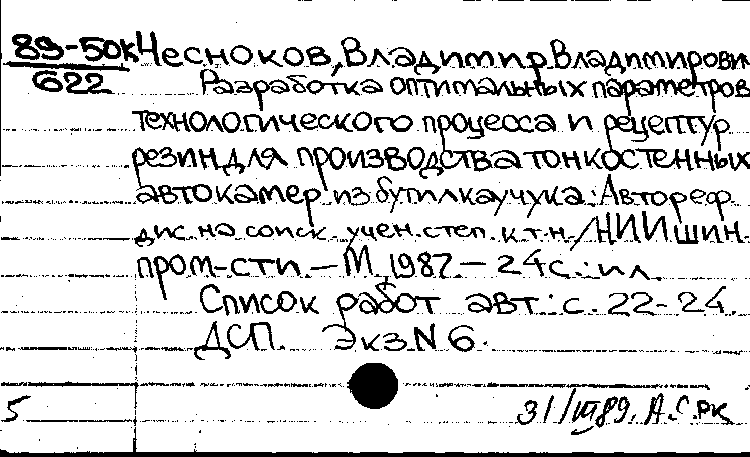 89-50к Чесноков, Владимир Владимирови
622 Разработка оптимальных параметров
технологического процесса и рецептур
резин для производства тонкостенных
автокамер из бутилкаучука: Автореф.
дис. на соиск. учен. степ. к.т.н. / НИИ шин.
пром-сти. — М., 1987. — 24 с.: ил.
Список работ авт.: с. 22-24.
ДСП. Экз N 6.
5 31/III 89. А.С. РК